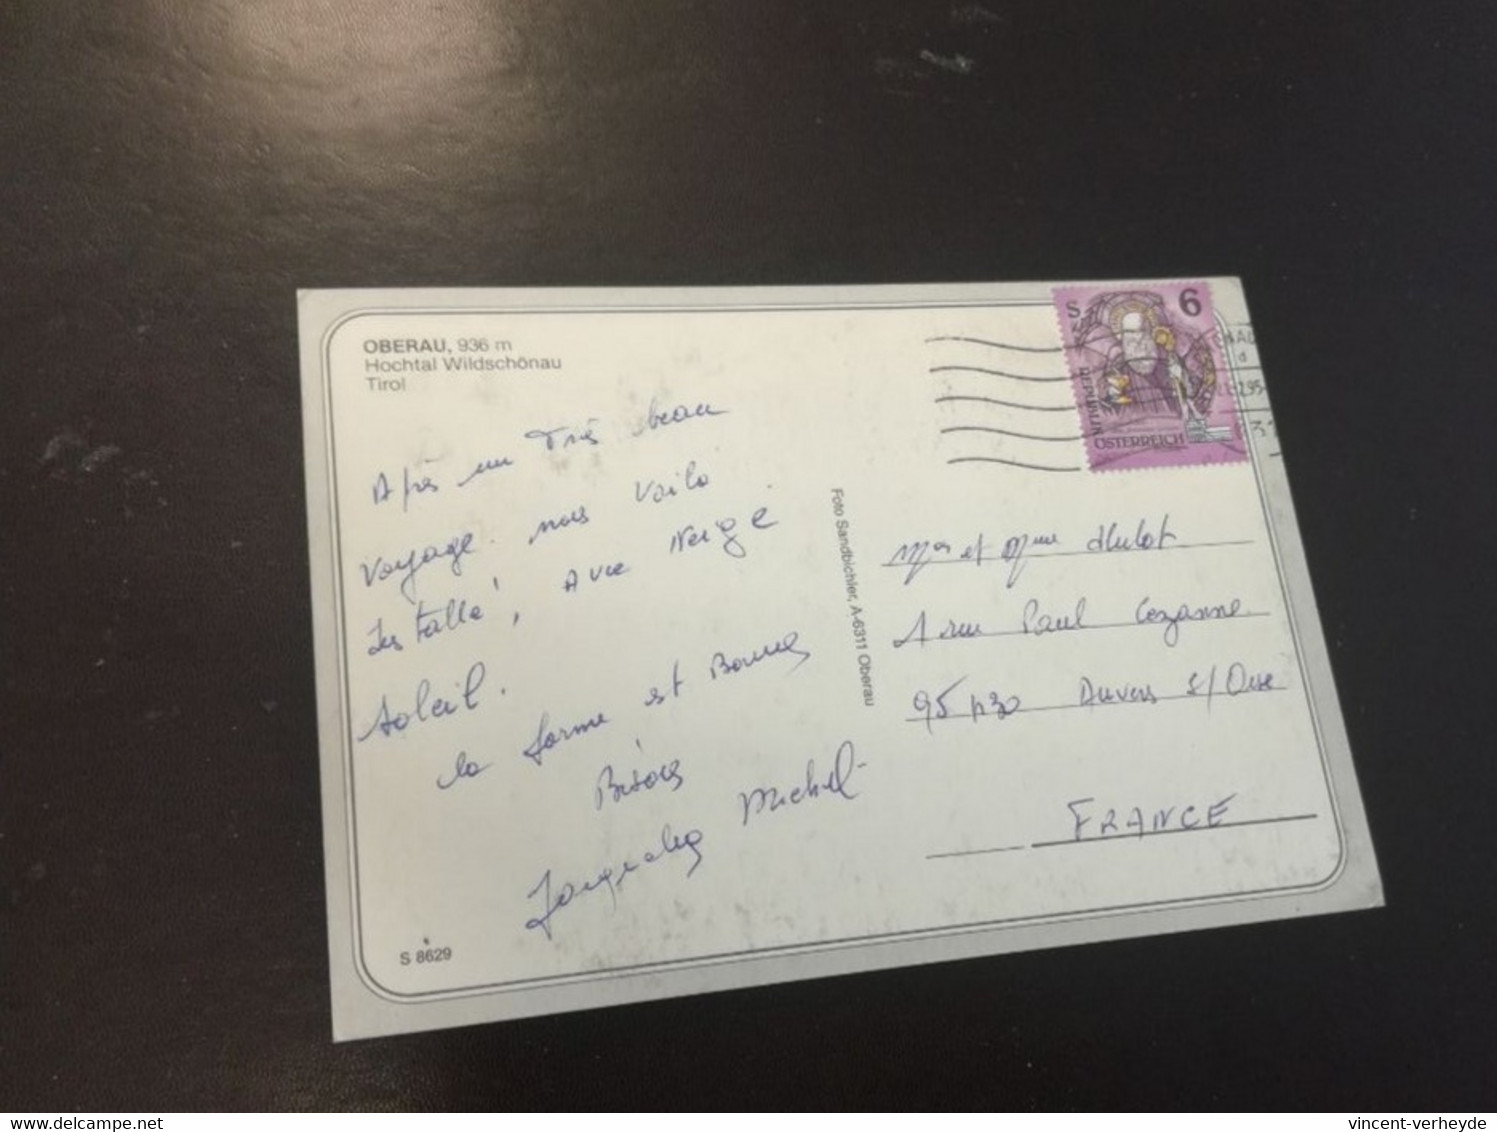 OBERAU, 936 m
Hochtal Wildschönau
Tirol
Après un Très beau
voyage. nous voila
Installé, avec Neige
soleil.
la forme est Bonne
Bisous
Michel
S 8629
Foto Sandbichler, A-6311 Oberau
S 6
REPUBLIK
ÖSTERREICH
95
Mr et Mme Hulot
1 rue Paul Cezanne
95430 Auvers s/Oise
FRANCE
delcampe.net
vincent-verheyde